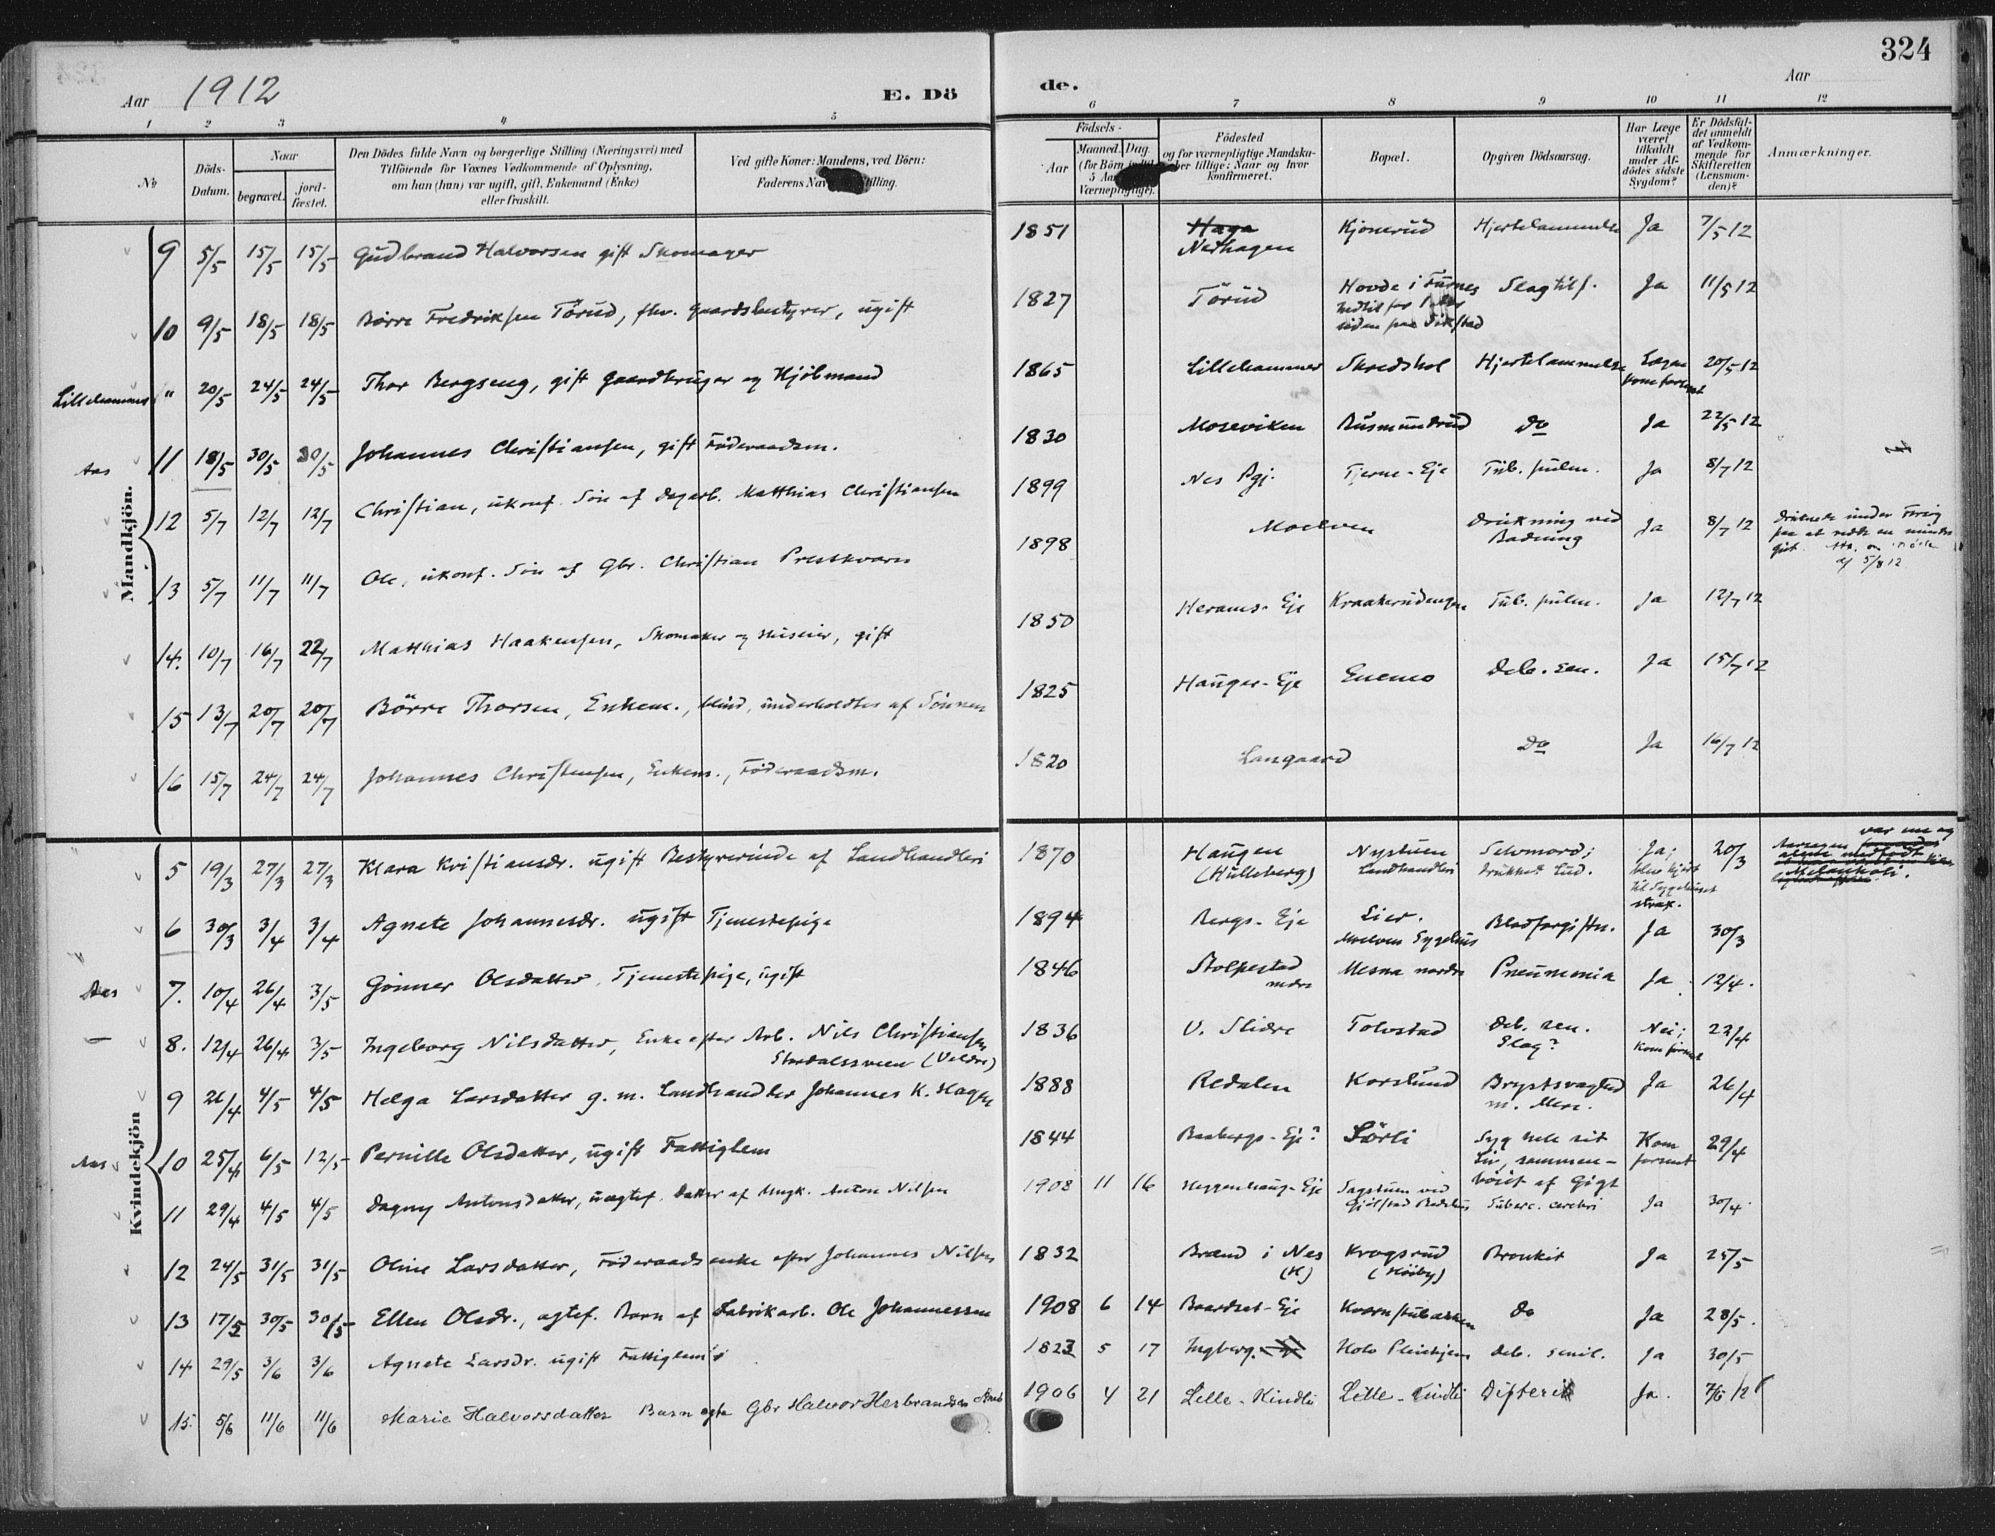 324
Aar 1912
E. Dö de.
Aar
1 2 3 4 5 6 7 8 9 10 11 12
No
Döds-Datum.
Naar
begravet. jord-fæstet.
Den Dödes fulde Navn og borgerlige Stilling (Næringsvei) med
Tilföiende for Voxnes Vedkommende af Oplysning,
om han (hun) var ugift, gift, Enkemand (Enke)
eller fraskilt.
Ved gifte Koner: Mandens, ved Börn:
Faderens Navn Stilling.
Födsels-
Aar Maaned. Dag.
(for Börn
5 Aar
Værnepligtige).
Födested
og for værnepligtige Mandska-
ber tillige: Naar og hvor
konfirmeret.
Bopæl.
Opgiven Dödsaarsag.
Har Læge
været
tilkaldt
under Af-
dödes sidste
Sygdom?
Er Dödsfal-
det anmeldt
af Vedkom-
mende for
Skifteretten
(Lensman-
den)?
Anmærkninger.
Mandkjön.
9 5/5 15/5 15/5 Gudbrand Halvorsen gift Skomager 1851 Haga Nedhagen Kjonerud Hjertelammelse Ja 7/5 12
10 9/5 18/5 18/5 Börre Fredriksen Törud, fhv. Gaardsbestyrer, ugift 1827 Törud Hovde i Furnes Slagtilf. Ja 11/5 12
Lillehammer " 20/5 24/5 24/5 Thor Bergseng, gift Gaardbruger og Hjölmand 1865 Lillehammer Skredshol Hjertelammelse 20/5 12
Aas 11 18/5 30/5 30/5 Johannes Christiansen, gift Föderaadsm. 1830 Moseviken Rusmundrud Do Ja 22/5 12
12 5/7 12/7 12/7 Christian, ukonf. Sön af Dagarb. Matthias Christiansen 1899 Nes Pgj. Tjerne-Eje Tub. pulm. Ja 8/7 12
13 5/7 11/7 11/7 Ole, ukonf. Sön af Gbr. Christian Prestkvarn 1898 Moelven Drukning ved Badning Ja 8/7 12 Druknede under Forsög paa at redde en mindre gut.
14. 10/7 16/7 22/7 Matthias Haakensen, Skomaker og Huseier, gift 1850 Herams-Eje Kraakerudengen Tub. pulm. Ja 12/7 12
15 13/7 20/7 20/7 Börre Thorsen, Enkem., blind, underholdtes af Sönnen 1825 Hauger-Eje Enemo Deb. sen. Ja 15/7 12
16 15/7 24/7 24/7 Johannes Christensen, Enkem., Föderaadsm. 1820 Langaard Do Ja 16/7 12
Kvindekjön
5 19/3 27/3 27/3 Klara Kristiansdr. ugift Bestyrerinde af Landhandleri 1870 Haugen (Hulleberg) Nystuen Landhandleri Selvmord; drukket Lud. Ja; blev kjört til Sygehuset strax. 20/3 Melankoli.
6 30/3 3/4 3/4 Agnete Johannesdr. ugift Tjenestepige 1894 Bergs-Eje Lier. Moelven Sygehus Blodforgiftn. Ja 30/3
Aas 7. 10/4 26/4 3/5 Gönner Olsdatter, Tjenestepige, ugift 1846 Stolpestad Mesna nordre Pneumonia Ja 12/4.
— 8. 12/4 26/4 3/5 Ingeborg Nilsdatter, Enke efter Arb. Nils Christiansen (Veldre) 1836 V. Slidre Tolvstad Deb. sen. Slag? Nei; 22/4
9 26/4 4/5 4/5 Helga Larsdatter g. m. Landhandler Johannes K. Hagen 1888 Redalen Korslund Brystsvaghed Ja 26/4
Aas 10 25/4 6/5 12/5 Pernille Olsdatter, ugift Fattiglem 1844 Baabergs-Eje? Lörli Syg hele sit Liv, sammen-böiet af Gigt Kom forsent 29/4
11 29/4 4/5 4/5 Dagny Antonsdatter, uægtef. Datter af Ungk. Anton Nilsen 1908 11 16 Heggenhaug-Eje Sagstuen ved Tuberc. cerebri Ja 30/4
12 24/5 31/5 31/5 Oline Larsdatter, Föderaadsenke efter Johannes Nilsen 1832 Brænd i Nes (H) Krogsrud (Höiby) Bronkit Ja 25/5
13 17/5 30/5 30/5 Ellen Olsdr., ægtef. Barn af Fabrikarb. Ole Johannessen 1908 6 14 Baardset-Eje Kværnstubakken Do Ja 28/5.
14 29/5 3/6 3/6 Agnete Larsdr. ugift Fattiglem 1823 5 17 Ingberg Deb. senil. Ja 30/5
15. 5/6 11/6 11/6 Marie Halvorsdatter Barn ægte Gbr Halvor Herbrandsen 1906 4 21 Lille-Kindli Lille-Kindli Difteri Ja. 7/6 12